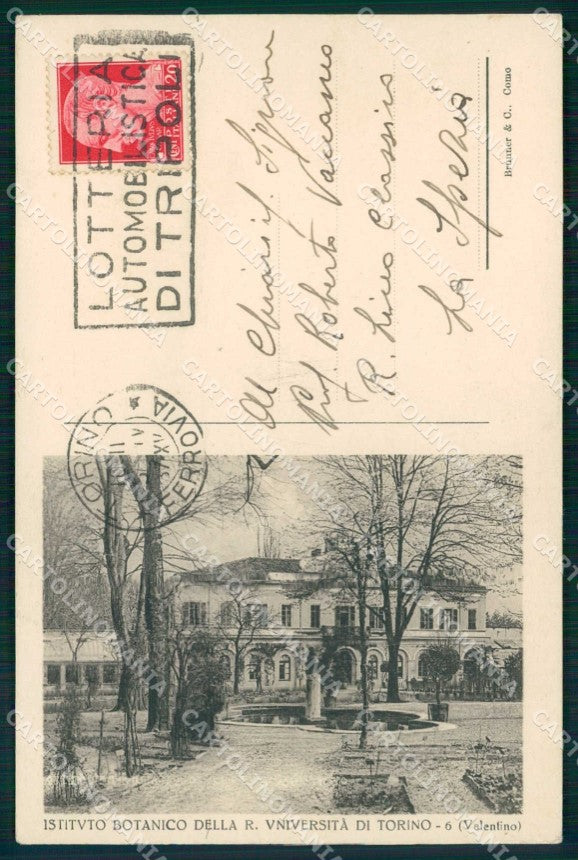 LOTTERIA
AUTOMOBILISTICA
DI TRIPOLI
TORINO
FERROVIA
Al Chiaris. Signore
Prof. Roberto
R. Liceo Classico
La Spezia
Brunner & C., Como
ISTITVTO BOTANICO DELLA R. VNIVERSITÀ DI TORINO - 6 (Valentino)
CARTOLINOMANIA